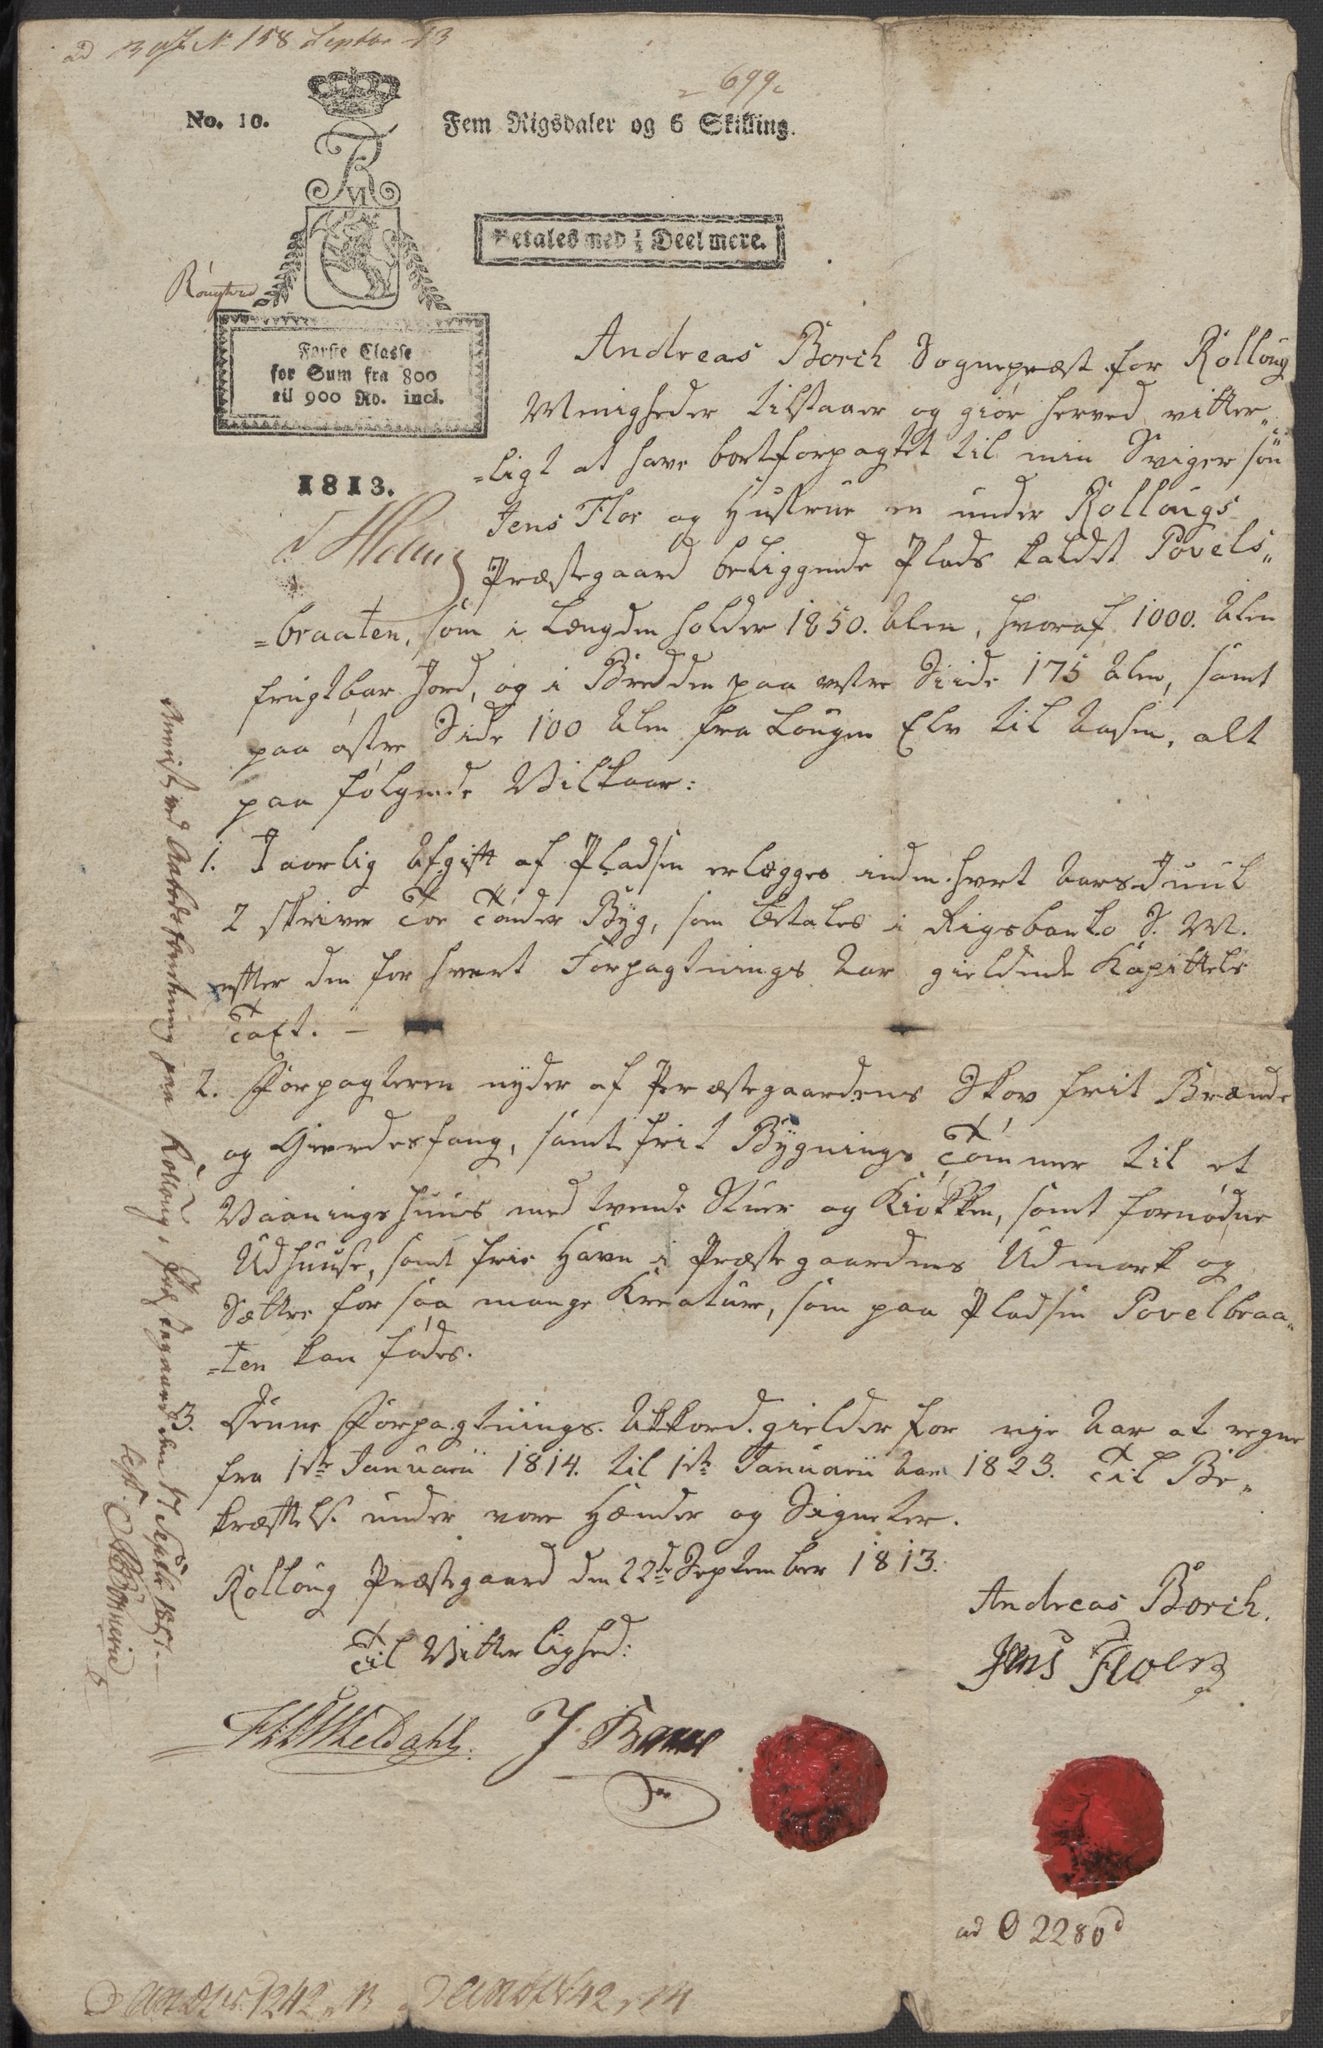 No. 10.
699
Fem Rigsdaler og 6 Skilling.
VI
Betales med ½ Deel mere.
Første Classe
for Sum fra 800
til 900 Rd. incl.
1813.
Andreas Borch Sognepræst for Rolloug
Menigheder tilstaaer og giør herved vitter„
„ligt at have bortforpagtet til min Svigersøn
Jens Flor og Hustrue en under Rollougs
Præstegaard beliggende Plads kaldet Povels„
„braaten, som i Længden holder 1850. Alen, hvoraf 1000. Alen
frugtbar Jord, og i Bredden paa vestre Siide 175 Alen, samt
paa østre Side 100 Alen fra Lougen Elv til Aasen, alt
paa følgende Vilkaar:
1. I aarlig Afgift af Pladsen erlægges inden hvert Aars Juul
2 skriver Toe Tønder Byg, som betales i Rigsbanko S. M.
efter den for hvert Forpagtnings Aar gieldende Kapittels
Taxt. –
2. Forpagteren nyder af Præstegaardens Skov frit Brænde
og Gierdesfang, samt frit Bygnings Tømmer til et
Vaaningshuus med tvende Stuer og Kiøkken, samt fornødne
Udhuuse, samt frie Havn i Præstegaardens Udmark og
Sætter for saa mange Kreature, som paa Pladsen Povelbraa„
„ten kan fødes.
3. Denne Forpagtnings Akkord gielder for nye Aar at regne
fra 1ste Januarii 1814. til 1ste Januarii Aar 1823. Til Be„
kræftelse under vore Hænder og Signeter.
Rolloug Præstegaard den 22de September 1813.
Andreas Borch.
Til Vitterlighed:
Jens Floer
ad O 2280
paa Rolloug Præstegaard den 17 Septbr